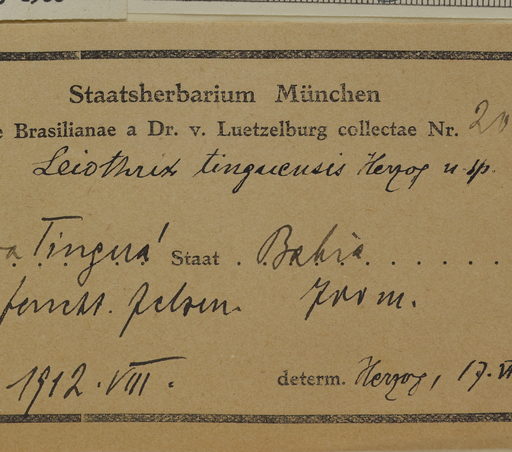 Staatsherbarium München
e Brasilianae a Dr. v. Luetzelburg collectae Nr. 20
Leiothrix tinguensis Herzog n. sp.
ra Tinguá Staat . Bahia . . . . . .
feucht. Felsen. 700 m.
1912. VIII.
determ. Herzog, 17. VI